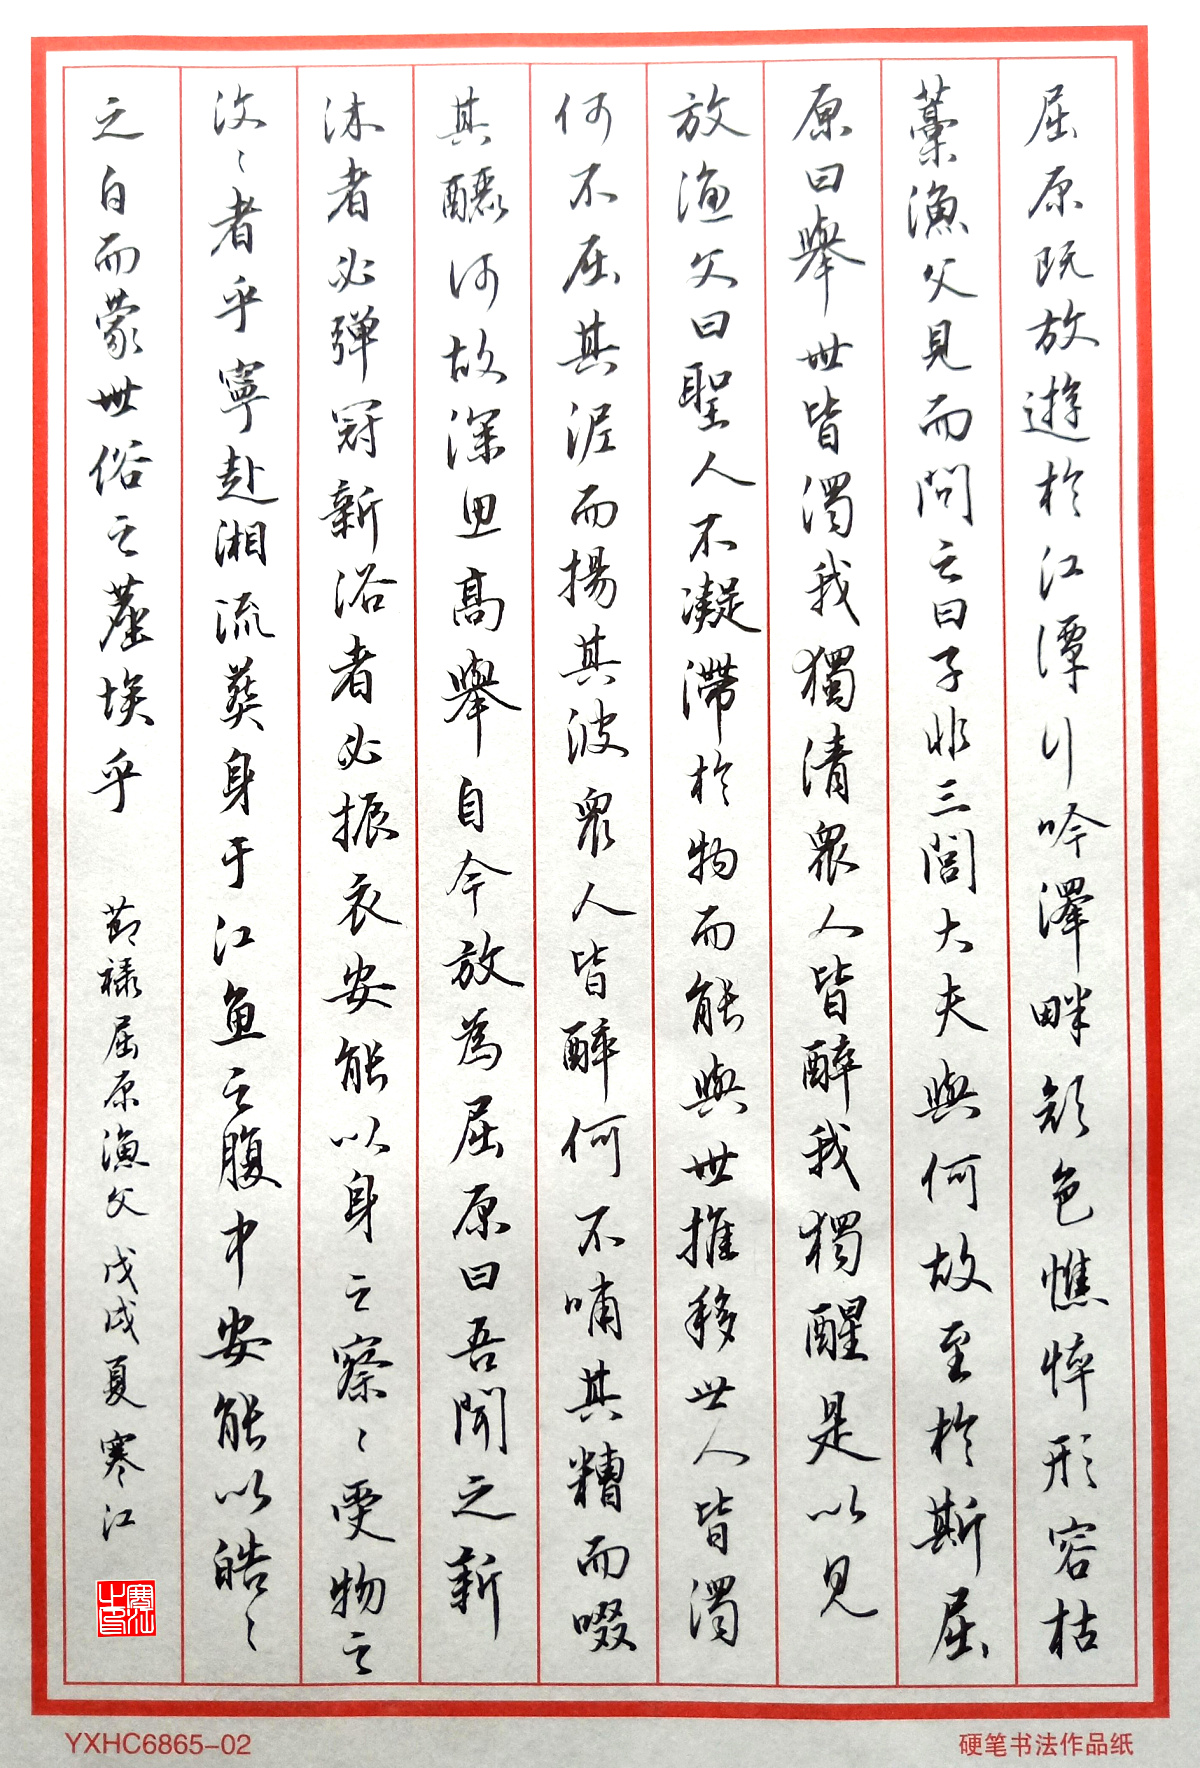 屈原既放遊於江潭行吟澤畔顏色憔悴形容枯
藁漁父見而問之曰子非三閭大夫與何故至於斯屈
原曰舉世皆濁我獨清眾人皆醉我獨醒是以見
放漁父曰聖人不凝滯於物而能與世推移世人皆濁
何不屈其泥而揚其波眾人皆醉何不哺其糟而啜
其釃何故深思高舉自令放為屈原曰吾聞之新
沐者必彈冠新浴者必振衣安能以身之察〻受物之
汶〻者乎寧赴湘流葬身于江魚之腹中安能以皓〻
之白而蒙世俗之塵埃乎
節祿屈原漁父 戊戌夏 寒江
寒江之印
YXHC6865-02
硬笔书法作品纸